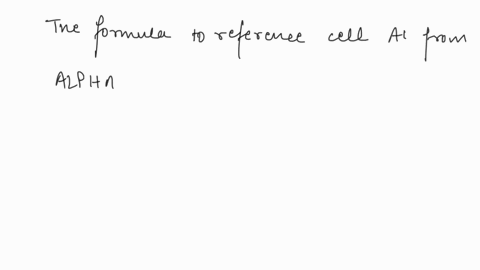 The formula to reference cell A1 from
ALPHA